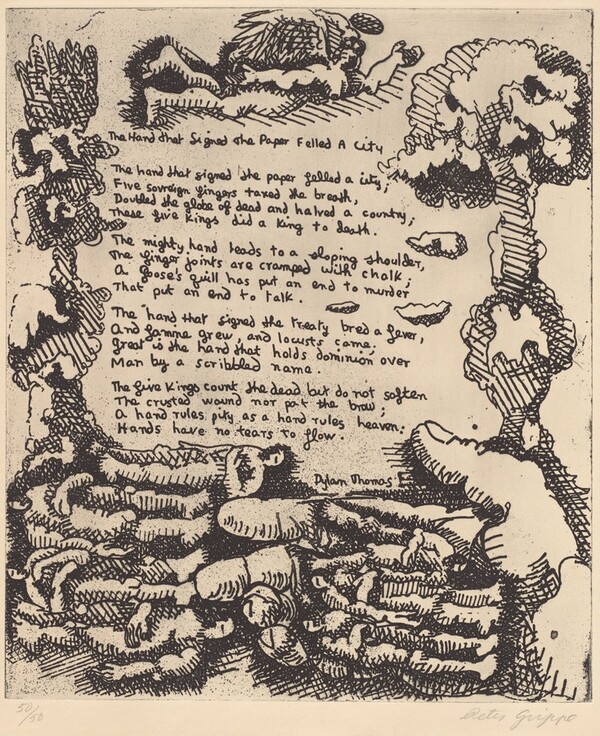 The Hand that Signed the Paper Felled A City
The hand that signed the paper felled a city;
Five sovereign fingers taxed the breath,
Doubled the globe of dead and halved a country;
These five kings did a king to death.
The mighty hand leads to a sloping shoulder,
The finger joints are cramped with chalk;
A goose's quill has put an end to murder
That put an end to talk.
The hand that signed the treaty bred a fever,
And famine grew, and locusts came;
Great is the hand that holds dominion over
Man by a scribbled name.
The five kings count the dead but do not soften
The crusted wound nor pat the brow;
A hand rules pity as a hand rules heaven;
Hands have no tears to flow.
Dylan Thomas
50/50
Peter Grippo